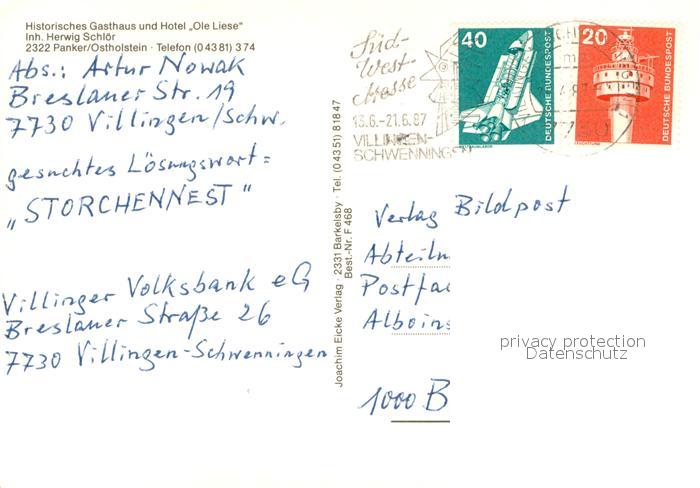 Historisches Gasthaus und Hotel „Ole Liese"
Inh. Herwig Schlör
2322 Panker/Ostholstein · Telefon (0 43 81) 3 74
Abs.: Artur Nowak
Breslauer Str. 19
7730 Villingen/Schw.
gesuchtes Lösungswort =
„STORCHENNEST"
Villinger Volksbank eG
Breslauer Straße 26
7730 Villingen-Schwenningen
Joachim Eicke Verlag 2331 Barkelsby · Tel. (0 43 51) 8 18 47
Best.-Nr. F 468
Süd-
West-
Messe
13.6.-21.6.87
VILLINGEN-
SCHWENNINGEN
40
DEUTSCHE BUNDESPOST
20
DEUTSCHE BUNDESPOST
Verlag Bildpost
Abteiln
Postfac
Alboins
1000 B
privacy protection
Datenschutz